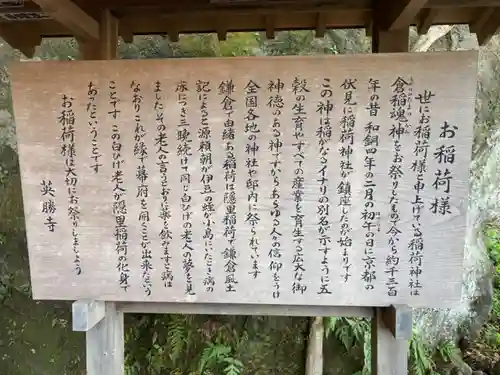 お稲荷様
世にお稲荷様と申上げている稲荷神社は
倉稲魂神をお祭りしたもので今から約千三百
年の昔 和銅四年の二月の初午の日に京都の
伏見に稲荷神社が鎮座したのが始まりです
この神は稲がなるイナリの別名が示すように五
穀の生育やすべての産業を育生する広大な御
神徳のある神ですからあらゆる人々の信仰をうけ
全国各地の神社や邸内に祭られています
鎌倉で由緒ある稲荷は隠里稲荷で鎌倉風土
記によると源頼朝が伊豆の蛭が小島にいたとき病の
床につき三晩続けて同じ白ひげの老人の夢を見
ましたその老人の言うとおり薬を飲みますと病は
なおりこれが縁で幕府を開くことが出来たという
ことです この白ひげ老人が隠里稲荷の化身で
あったということです
お稲荷様は大切にお祭りしましょう
英勝寺